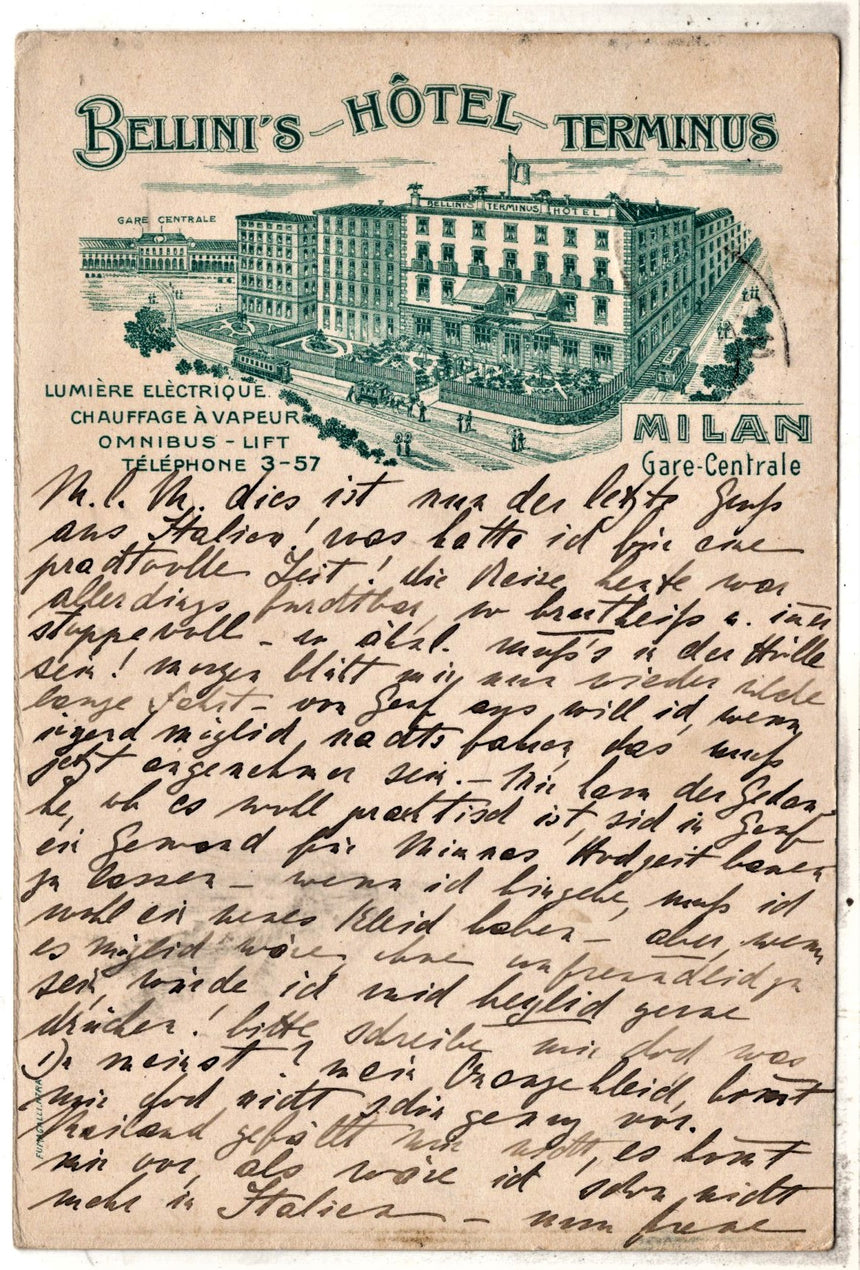 BELLINI'S HÔTEL TERMINUS
GARE CENTRALE
BELLINI'S TERMINUS HOTEL
LUMIÈRE ELÈCTRIQUE.
CHAUFFAGE À VAPEUR
OMNIBUS - LIFT
TÉLÉPHONE 3-57
MILAN
Gare-Centrale
M. l. M. dies ist nun der letzte Gruß
aus Italien! was hatte ich für eine
prachtvolle Zeit! die Reise heute war
allerdings furchtbar, so brutheiß u. im̄er
stoppevoll - so ähnl. muß's in der Hölle
sein! morgen blüht mir nun wieder
lange Fahrt - von Genf aus will ich, wenn
irgend möglich, nachts fahren, das muß
jetzt angenehmer sein. - Mir kam der Gedan-
ke, ob es wohl practisch ist, sich in Genf
ein Gewand für Minnas Hochzeit bauen
zu lassen - wenn ich hingehe, muß ich
wohl ein neues Kleid haben - aber, wenn
es möglich wäre, ohne unfreundlich zu
sein, würde ich mich herzlich gerne
drücken! bitte schreibe mir doch was
Du meinst? mein Orangekleid, kom̄t
mir doch nicht schön genug vor.
Mailand gefällt mir nicht, es kom̄t
mir vor, als wäre ich schon nicht
mehr in Italien - nun freue
FUMAGALLI